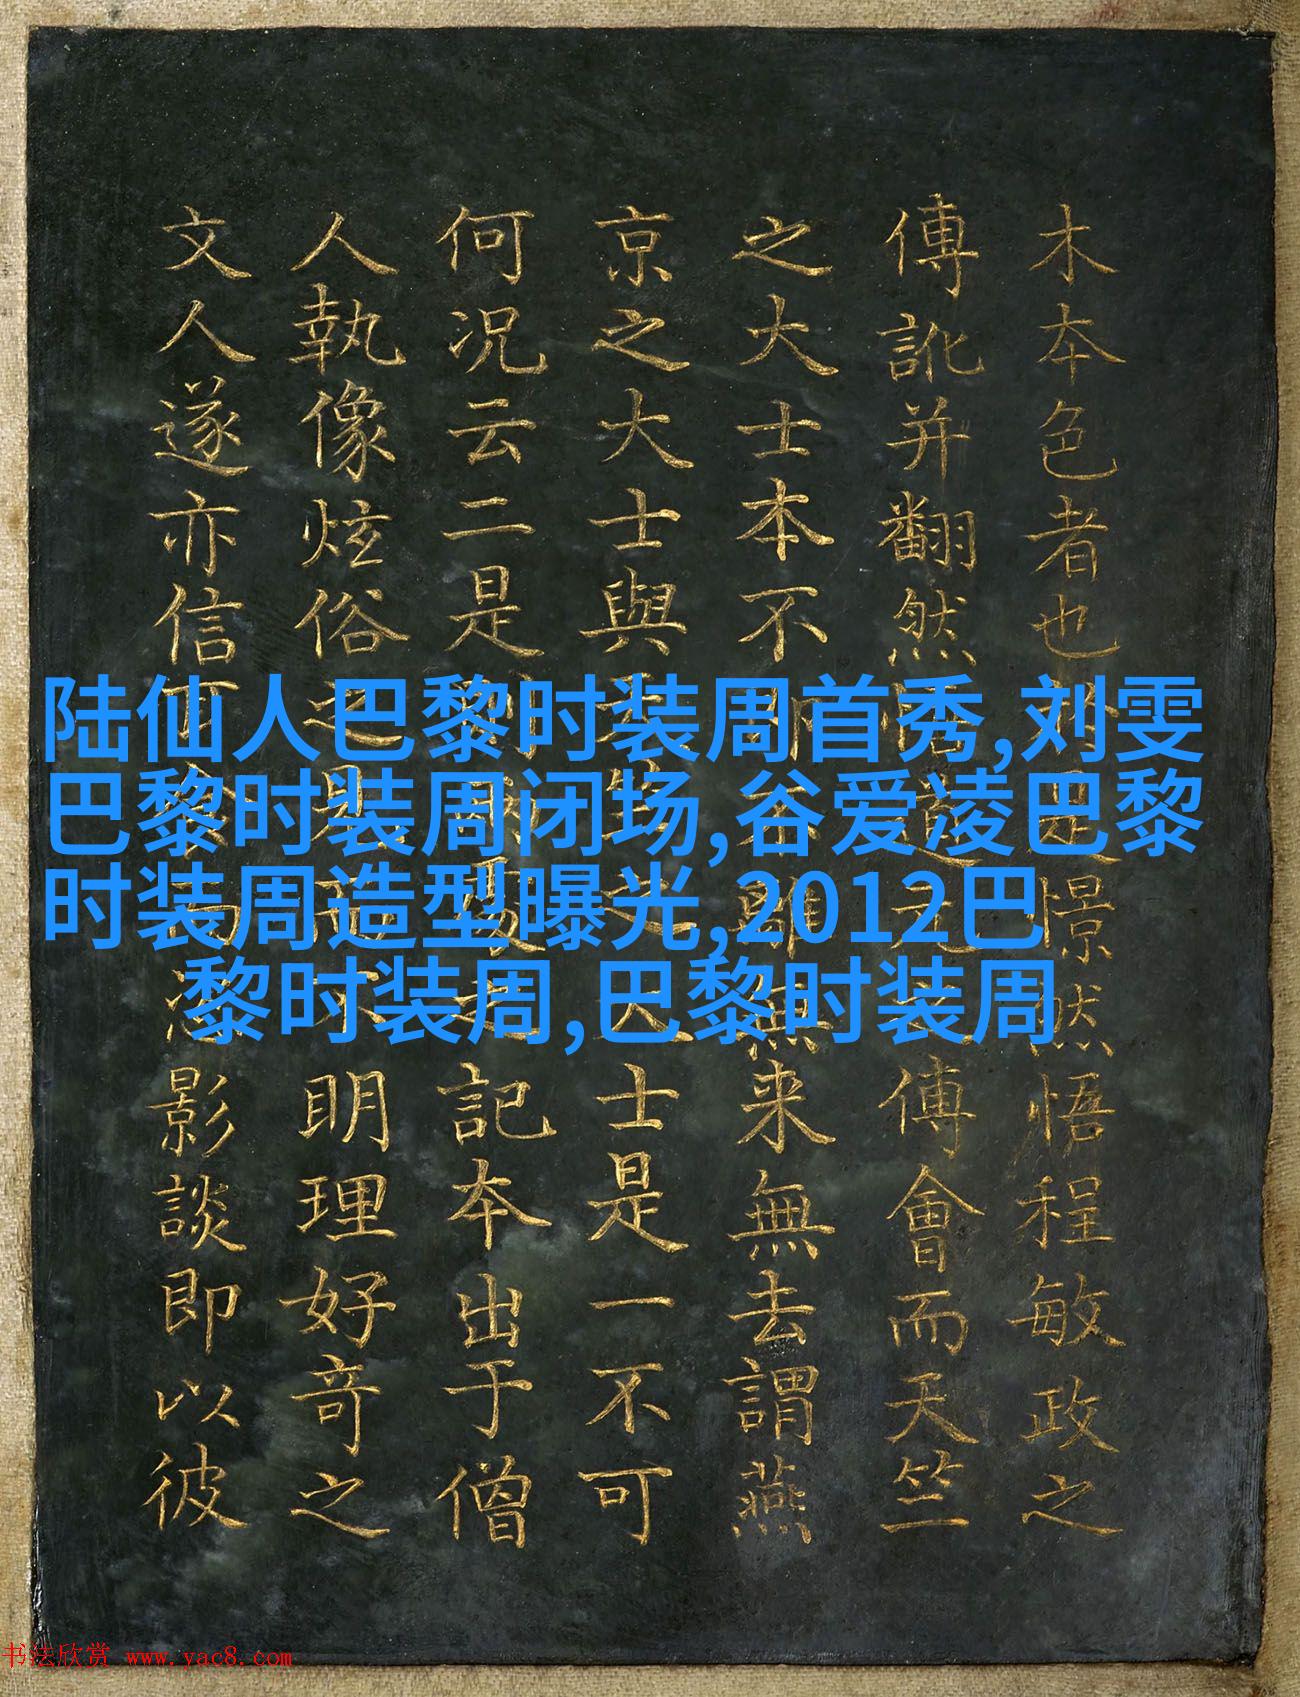 陆仙人巴黎时装周首秀,刘雯
巴黎时装周闭场,谷爱凌巴黎
时装周造型曝光,2012巴
黎时装周,巴黎时装周
木本色者也憬然悟程敏政之
傳訛并翻然傅會而天竺
之大士本不無来無去謂燕
京之大士與士是一不可
何况云二是則記本出于僧
人執像炫俗之場不明理好奇之
文人遂亦信耳影談即以彼
书法欣赏 www.yac8.com